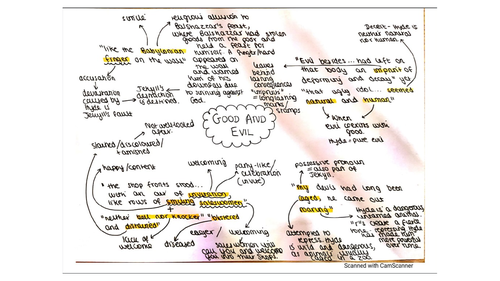 simile
religious allusion to
Balshazzar's feast,
where Balshazzar had stolen
goods from the poor and
held a feast for
himself. A finger/hand
appeared on
the wall
and warned
him of his
downfall due
to sinning against
God.
"like the Babylonian
finger on the wall"
accusation
devastation
caused by
Hyde is
Jekyll's fault
Jekyll's
destruction
is destined.
leaves
behind
lasting
consequences
"imprint"
= longlasting
marks/
stamps
"Evil besides... had left on
that body an imprint of
deformity and decay"
Deceit - Hyde is
neither natural
nor human
"that ugly idol... seemed
natural and human"
When
evil coexists with
good.
Hyde = pure evil
GOOD AND
EVIL
Not well-looked
after.
stained/discoloured/
tarnished
happy/content
welcoming
party-like/
celebration
(invite)
"the shop fronts stood...
with an air of invitation,
like rows of smiling saleswomen"
"neither bell nor knocker" "blistered
and distained"
lack of
welcome
diseased
eager / welcoming
saleswomen who
call you and welcome
you into their shops.
possessive pronoun
= also part of
Jekyll.
"my devil had long been
caged, he came out
roaring"
Hyde is a dangerous,
untamed animal.
attempted to
repress Hyde
is wild and dangerous,
as animals usually
caged in a zoo
"r"s create a fierce
tone - repressing Hyde
has made him
more powerful
over time.
Scanned with CamScanner